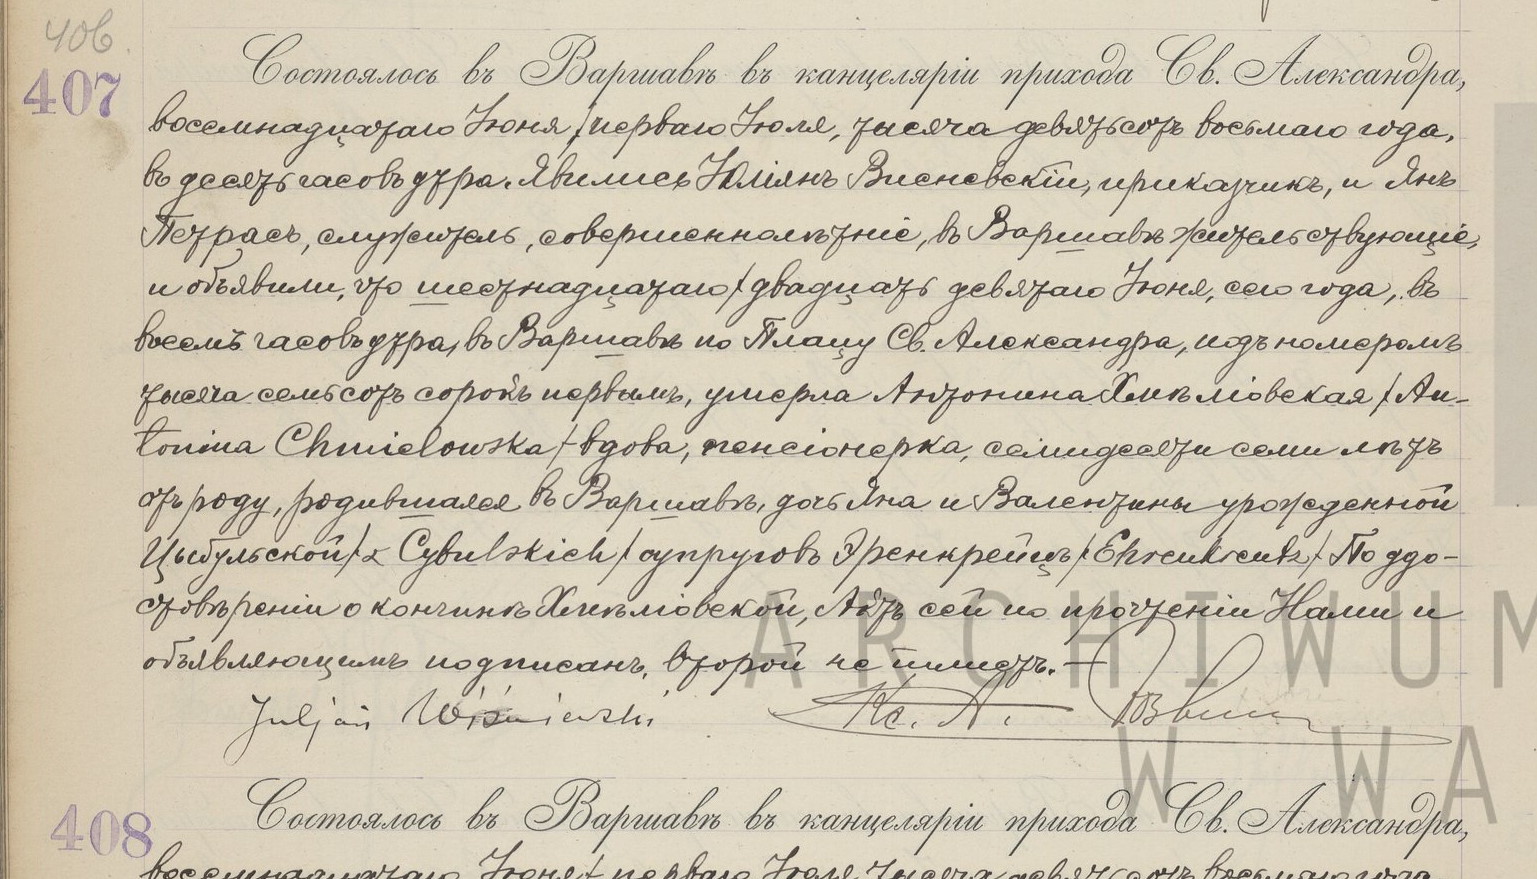 406.
407
Состоялось въ Варшавѣ въ канцеляріи прихода Св. Александра,
восемнадцатаго Іюня / перваго Іюля, тысяча девятьсотъ восьмаго года,
въ десять часовъ утра. Явились Юліянъ Висневскій, приказчикъ, и Янъ
Петрасъ, служитель, совершеннолѣтніе, въ Варшавѣ жительствующіе,
и объявили, что шестнадцатаго / двадцать девятаго Іюня, сего года, въ
восемь часовъ утра, въ Варшавѣ по Плацу Св. Александра, подъ номеромъ
тысяча семьсотъ сорокъ первымъ, умерла Антонина Хмѣліовская / An-
tonina Chmielowska / вдова, пенсіонерка, семидесяти семи лѣтъ
отъ роду, родившаяся въ Варшавѣ, дочь Яна и Валентины урожденной
Цыбульской / z Cybulskich / супруговъ Эренкрейцъ / Ehrenkreutz / По удо-
стовѣреніи о кончинѣ Хмѣліовской, Актъ сей по прочтеніи Нами и
объявляющимъ подписанъ, второй не пишетъ. —
Juljan Wiśniewski Кс. А.
ARCHIWUM
W WA
408
Состоялось въ Варшавѣ въ канцеляріи прихода Св. Александра,
восемнадцатаго Іюня / перваго Іюля тысяча девятьсотъ восьмаго года